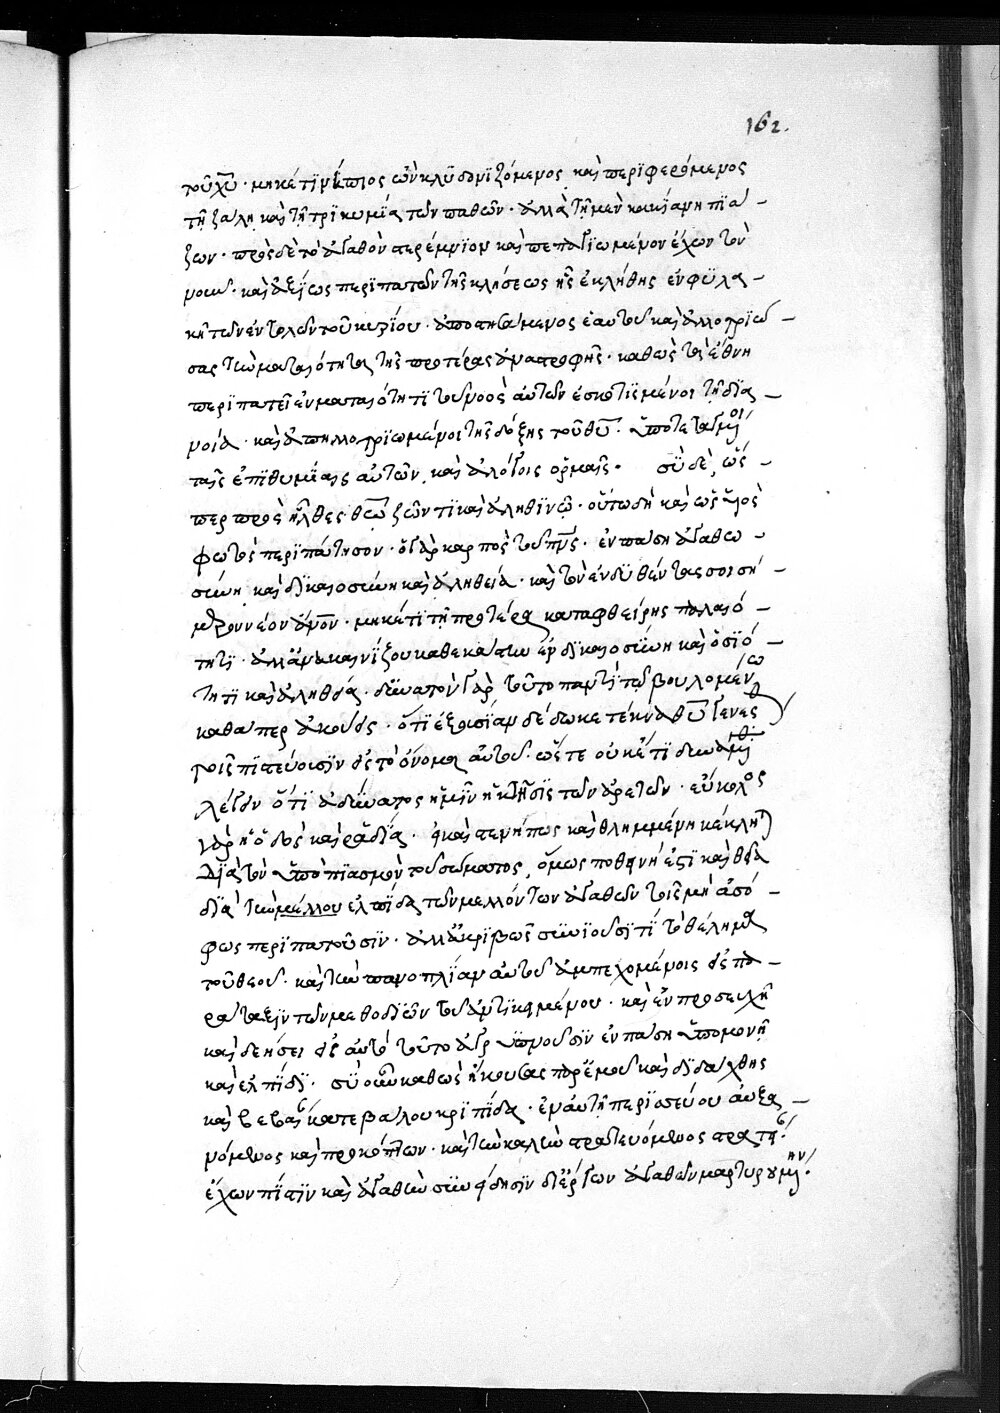 162.
τοῦ χῦ · μηκέτι νήπιος ὢν κλυδωνιζόμενος καὶ περιφερόμενος
τῆ ζάλη καὶ τῆ τρικυμία τῶν παθῶν · ἀλλὰ τῆ μὲν κακίᾳ νηπιά-
ζων · πρὸς δὲ τὸ ἀγαθὸν στερέμνιον καὶ πεπαγιωμένον ἔχων τὸν
νοῦν · καὶ ἀξίως περιπατῶν τῆς κλήσεως ἧς ἐκλήθης ἐν φυλα-
κῆ τῶν ἐντολῶν τοῦ κυρίου · ἀποστησάμενος ἑαυτοῦ καὶ ἀλλοτριώ-
σας τὴν ματαιότητα τῆς προτέρας ἀναστροφῆς · καθὼς τὰ ἔθνη
περιπατεῖ ἐν ματαιότητι τοῦ νοὸς αὐτῶν ἐσκοτισμένοι τῆ δια-
νοία · καὶ ἀπηλλοτριωμένοι τῆς δόξης τοῦ θῦ · ὑποτεταγμένοι
ταῖς ἐπιθυμίαις αὐτῶν, καὶ ἀλόγοις ὁρμαῖς · σὺ δὲ, ὥσ-
περ προσῆλθες θεῷ ζῶντι καὶ ἀληθινῷ · οὕτω δὴ καὶ ὡς υἱὸς
φωτὸς περιπάτησον · ὁ γὰρ καρπὸς τοῦ πνς · ἐν πάση ἀγαθω-
σύνη καὶ δικαιοσύνη καὶ ἀληθεία · καὶ τὸν ἐνδυθέντα σοι σή-
μερον νέον ἄνον · μηκέτι τῆ προτέρα καταφθείρης παλαιό-
τητι · ἀλλ' ἀνακαινίζου καθεκάστην ἐν δικαιοσύνη καὶ ὁσιό-
τητι καὶ ἀληθεία · δυνατὸν γὰρ τοῦτο παντὶ τῷ βουλομένω
καθάπερ ἀκούεις · ὅτι ἐξουσίαν δέδωκε τέκνα θῦ γενέσθαι
τοῖς πιστεύουσιν εἰς τὸ ὄνομα αὐτοῦ · ὥστε οὐκέτι δυνάμεθα
λέγειν ὅτι ἀδύνατος ἡμῖν ἡ κτῆσις τῶν ἀρετῶν · εὔκολος
γὰρ ἡ ὁδὸς καὶ ῥαδία · εἰ καὶ στενή πως καὶ θλιμμένη κέκληται
διὰ τὸν ὑποπιασμὸν τοῦ σώματος, ὅμως ποθεινή ἐστι καὶ θεία
διὰ τὴν μέλλου ἐλπίδα τῶν μελλόντων ἀγαθῶν τοῖς μὴ ἀσό-
φως περιπατοῦσιν · ἀλλ' ἀκριβῶς συνιοῦσι τί τὸ θέλημα
τοῦ θεοῦ · καὶ τὴν πανοπλίαν αὐτοῦ ἀμπεχομένοις εἰς πα-
ράταξιν τῶν μεθοδιῶν τοῦ ἀντικειμένου · καὶ ἐν προσευχῆ
καὶ δεήσει εἰς αὐτὸ τοῦτο ἀγρυπνοῦσιν ἐν πάση ὑπομονῆ
καὶ ἐλπίδι · σὺ οὖν καθὼς ἤκουσας παρ' ἐμοῦ καὶ διδαχθης
καὶ βεβαίαν κατεβάλου κρηπίδα · ἐν αὐτῆ περισσεύου αὐξα-
νόμενος καὶ προκόπτων · καὶ τὴν καλὴν στρατευόμενος στρατείαν ·
ἔχων πίστιν καὶ ἀγαθὴν συνείδησιν δι' ἔργων ἀγαθῶν μαρτυρουμένην ·